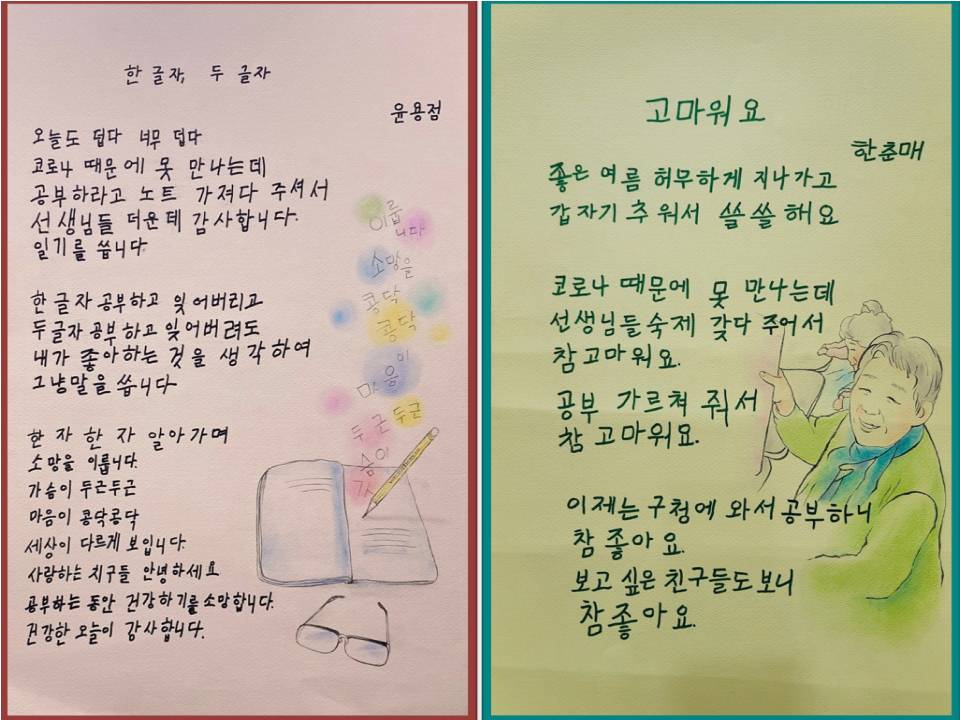 한 글자, 두 글자
윤용점
오늘도 덥다 너무 덥다
코로나 때문에 못 만나는데
공부하라고 노트 가져다 주셔서
선생님들 더운데 감사합니다.
일기를 씁니다.
한글자 공부하고 잊어버리고
두글자 공부하고 잊어버려도
내가 좋아하는 것을 생각하여
그냥말을 씁니다
한 자 한 자 알아가며
소망을 이룹니다.
가슴이 두근두근
마음이 콩닥콩닥
세상이 다르게 보입니다.
사랑하는 지구들 안녕하세요
공부하는 동안 건강하기를소망합니다.
건강한 오늘이 감사합니다.
이룹
니다
소망을
콩닥
콩닥
마음이
두근두근
슴이
가
고마워요
한춘매
좋은 여름 허무하게 지나가고
갑자기 추워서 쓸쓸해요
코로나 때문에 못 만나는데
선생님들숙제 갖다 주어서
참고마워요.
공부 가르쳐 줘서
참 고마워요.
이제는 구청에 와서 공부하니
참 좋아요.
보고 싶은 친구들도보니
참좋아요.